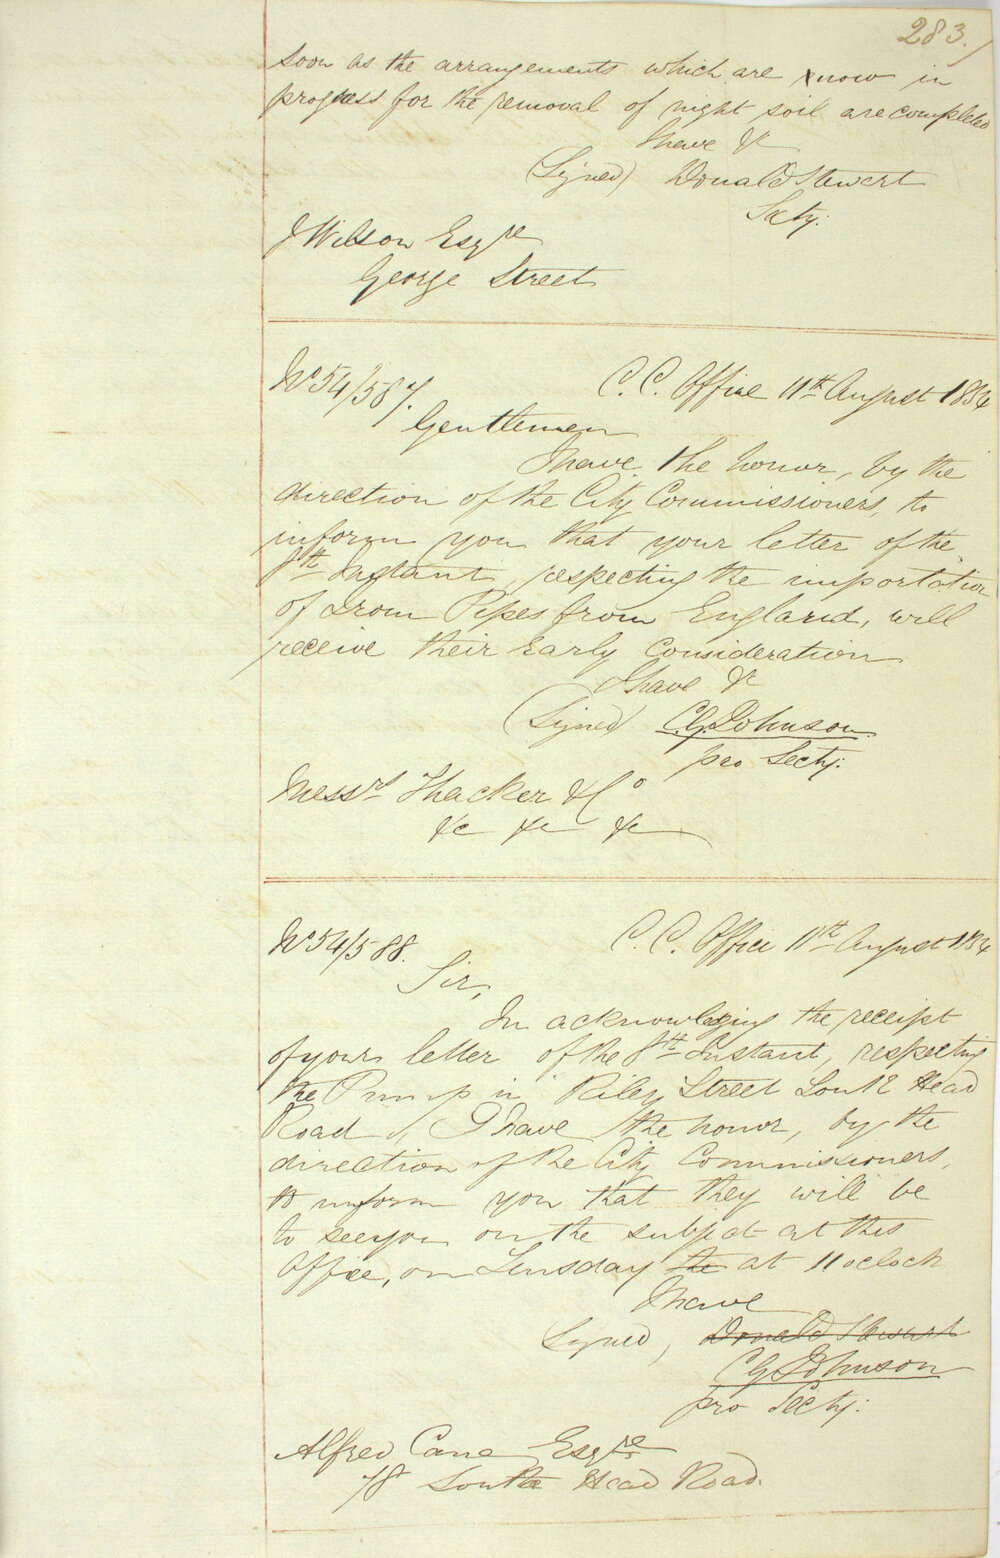 283.
soon as the arrangements which are now in
progress for the removal of night soil are completed
I have &c
(Signed) Donald Stewart
Secty:
J Wilson Esqre
George Street
No 54/587.
C. C. Office 11th August 1854
Gentlemen
I have the honor, by the
direction of the City Commissioners, to
inform you that your letter of the
8th Instant, respecting the importation
of Iron Pipes from England, will
receive their Early Consideration
I have &c
(Signed) C.G. Johnson
pro Secty:
Messrs Thacker & Co
&c &c &c
No 54/588.
C. C. Office 11th August 1854
Sir,
In acknowledging the receipt
of your letter of the 8th Instant, respecting
the Pump in Riley Street South Head
Road, I have the honor, by the
direction of the City Commissioners,
to inform you that they will be
to see you on the subject at this
Office, on Tuesday the at 11 oclock
I have
Signed, Donald Stewart
C G Johnson
pro Secty:
Alfred Cane Esqre
78 South Head Road.